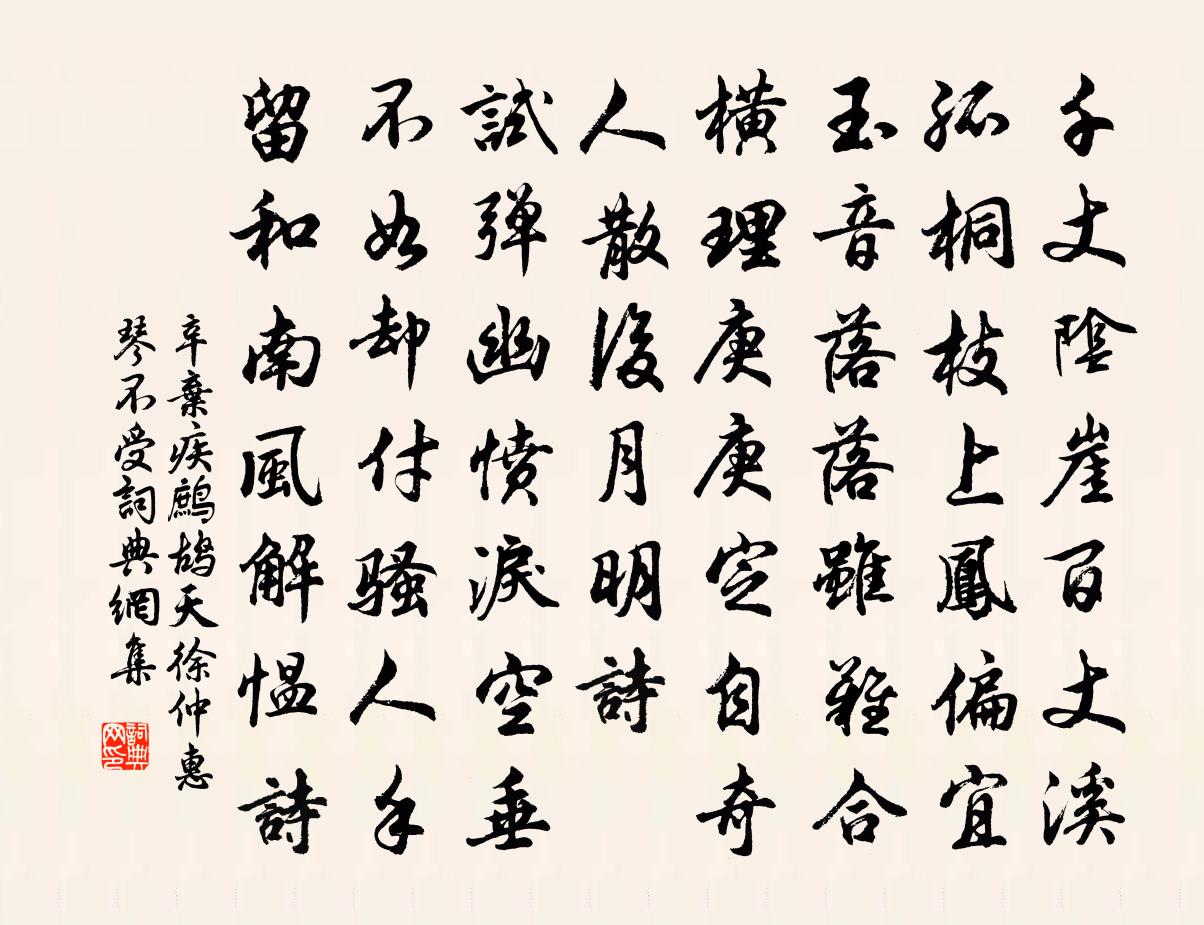 千丈陰崖百丈溪
孤桐枝上鳳偏宜
玉音落落雖難合
橫理庚庚定自奇
人散後月明詩
試彈幽憤淚空垂
不如却付騷人手
留和南風解愠詩
辛棄疾鷓鴣天徐仲惠
琴不受詞典網集
詞典网印